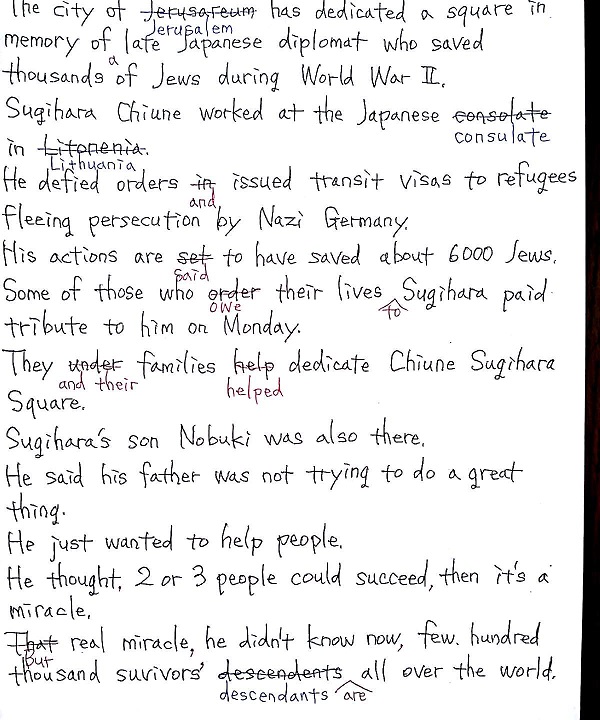 The city of Jerusareum has dedicated a square in
Jerusalem
memory of late Japanese diplomat who saved
a
thousands of Jews during World War II.
Sugihara Chiune worked at the Japanese consolate
consulate
in Litonenia.
Lithuania
He defied orders in issued transit visas to refugees
and
fleeing persecution by Nazi Germany.
His actions are set to have saved about 6000 Jews.
said
Some of those who order their lives Sugihara paid
owe to
tribute to him on Monday.
They under families help dedicate Chiune Sugihara
and their helped
Square.
Sugihara's son Nobuki was also there.
He said his father was not trying to do a great
thing.
He just wanted to help people.
He thought, 2 or 3 people could succeed, then it's a
miracle.
That real miracle, he didn't know now, few. hundred
But
thousand suvivors' descendents all over the world.
descendants are